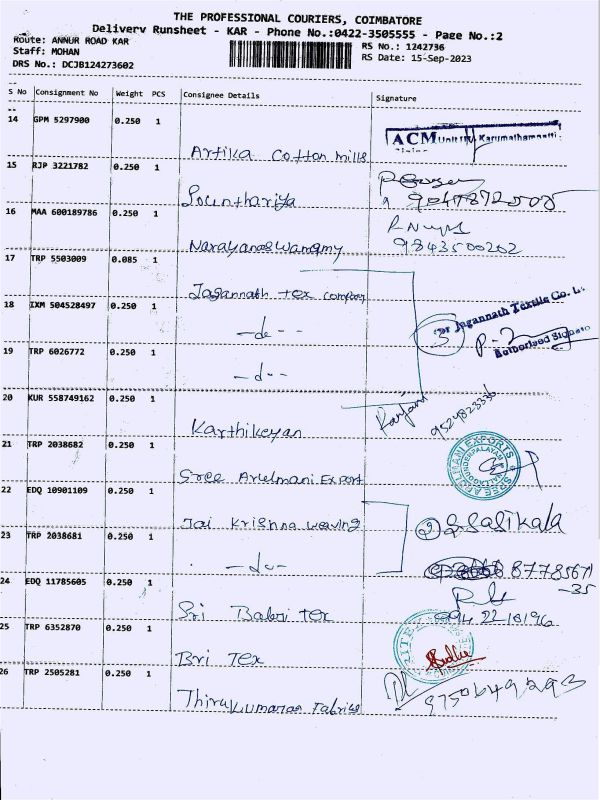 THE PROFESSIONAL COURIERS, COIMBATORE
Delivery Runsheet - KAR - Phone No.:0422-3505555 - Page No.:2
Route: ANNUR ROAD KAR
RS No.: 1242736
Staff: MOHAN
RS Date: 15-Sep-2023
DRS No.: DCJB124273602
S No Consignment No Weight PCS Consignee Details Signature
14 GPM 5297900 0.250 1
Artika Cotton mills
ACM Unit Karumathampatti
15 RJP 3221782 0.250 1
Sounthariya
16 MAA 600189786 0.250 1
Narayanaswamy
9843500202
17 TRP 5503009 0.085 1
Jagannath tex company
18 IXM 504528497 0.250 1
-do--
For Jagannath Textile Co.
Authorised Signato
19 TRP 6026772 0.250 1
-do--
20 KUR 558749162 0.250 1
Karthikeyan
Ranjani
9524823336
21 TRP 2038682 0.250 1
Sree Arulmani Export
SREE ARULMANI EXPORTS
22 EDQ 10901109 0.250 1
Jai Krishna weaving
2 S. Sasikala
23 TRP 2038681 0.250 1
-do-
8778567
-35
24 EDQ 11785605 0.250 1
Sri Babri tex
25 TRP 6352870 0.250 1
Bri Tex
26 TRP 2505281 0.250 1
Thirukumaran Fabrics
9750649293